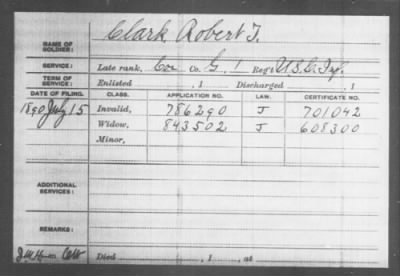 Clark Robert T.
NAME OF SOLDIER:
SERVICE: Late rank, Co. G. 1 Reg't U.S.C. Inf.
TERM OF SERVICE: Enlisted , 1 Discharged , 1
DATE OF FILING. CLASS. APPLICATION NO. LAW. CERTIFICATE NO.
1890 July 15 Invalid, 786290 J 701042
Widow, 843502 J 608300
Minor,
ADDITIONAL SERVICES:
REMARKS:
Died , 1